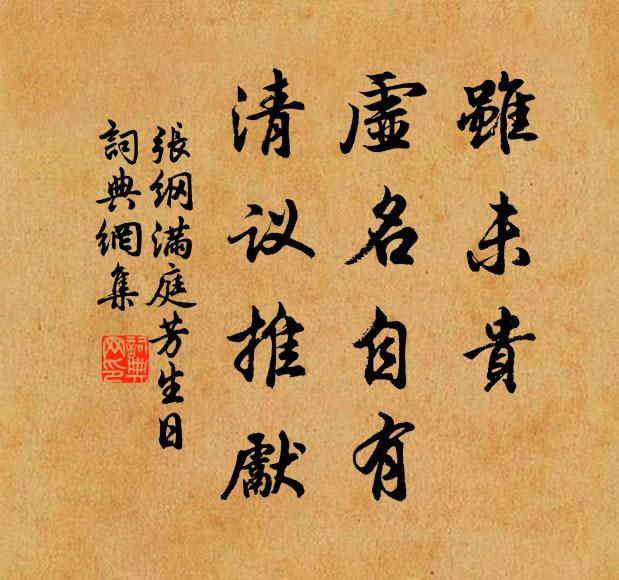 雖未貴
虛名自有
清议推獻
張纲满庭芳生日
詞典網集
詞典
网印